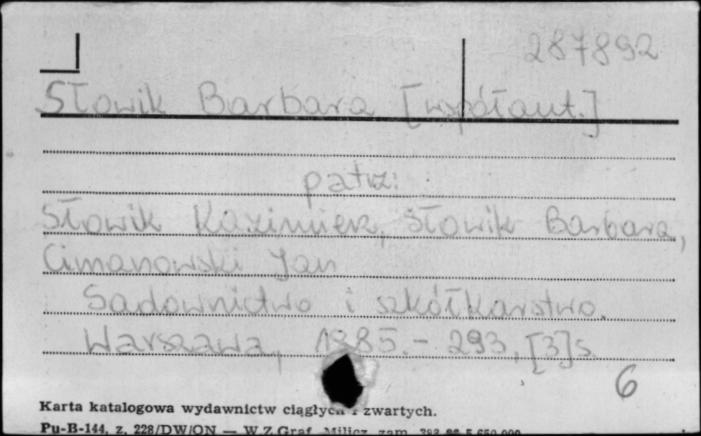 287892
Słowik Barbara [współaut.]
patrz:
Słowik Kazimierz, Słowik Barbara,
Cimanowski Jan
Sadownictwo i szkółkarstwo.
Warszawa, 1985. - 293, [3] s.
6
Karta katalogowa wydawnictw ciągłych i zwartych.
Pu-B-144, z. 228/DW/ON — W.Z.Graf. Milicz, zam.